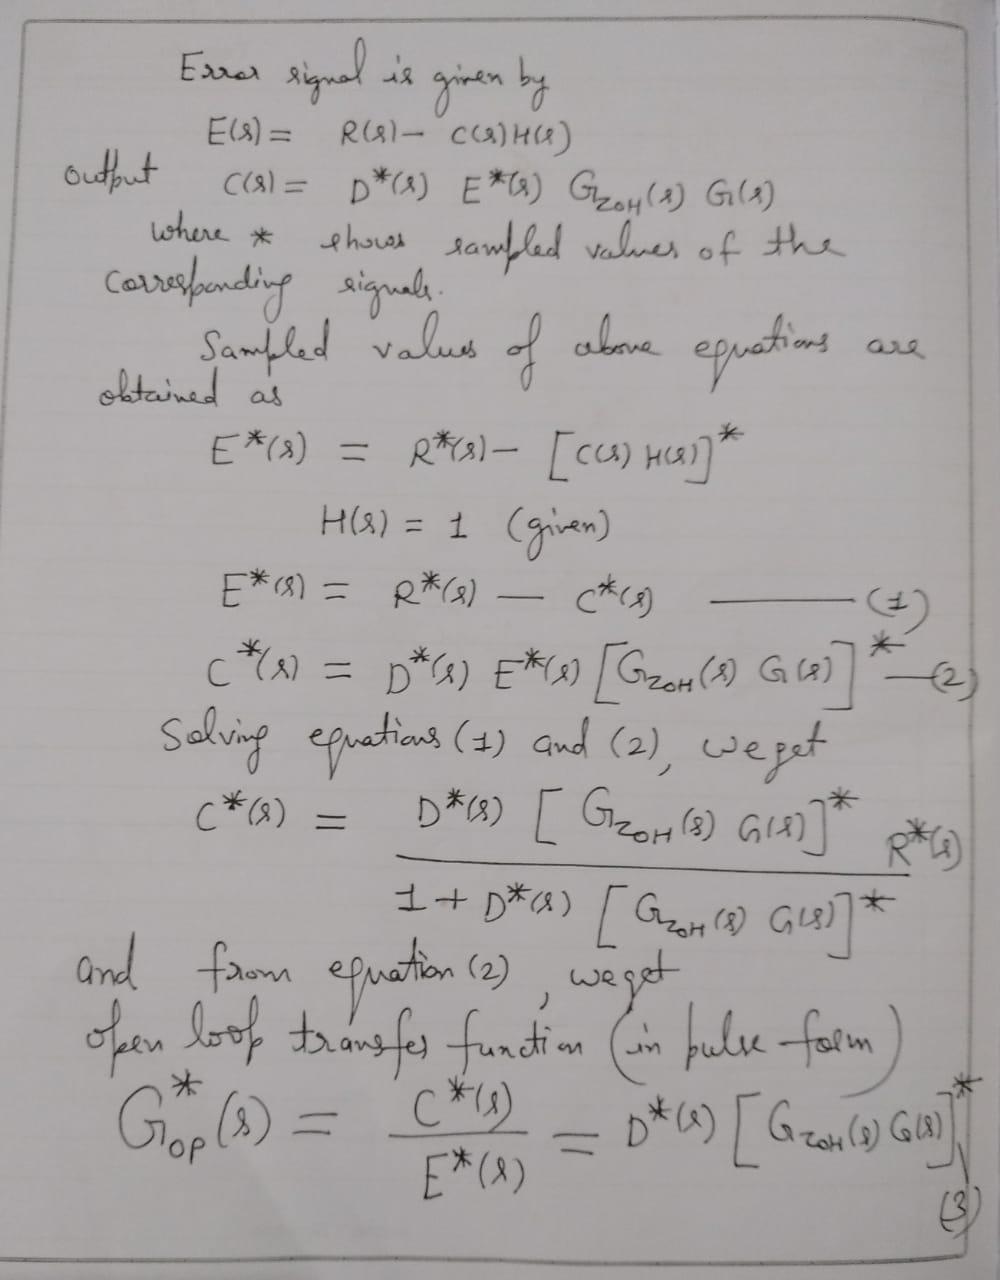 Error signal is given by
E(s) = R(s) - C(s) H(s)
output C(s) = D*(s) E*(s) G_ZOH(s) G(s)
where * shows sampled values of the
corresponding signals.
Sampled values of above equations are
obtained as
E*(s) = R*(s) - [C(s) H(s)]*
H(s) = 1 (given)
E*(s) = R*(s) - C*(s) — (1)
C*(s) = D*(s) E*(s) [G_ZOH(s) G(s)]* — (2)
Solving equations (1) and (2), we get
C*(s) = D*(s) [G_ZOH(s) G(s)]* R*(s)
1 + D*(s) [G_ZOH(s) G(s)]*
and from equation (2), we get
open loop transfer function (in pulse form)
G*_op(s) = C*(s) / E*(s) = D*(s) [G_ZOH(s) G(s)]*
(3)